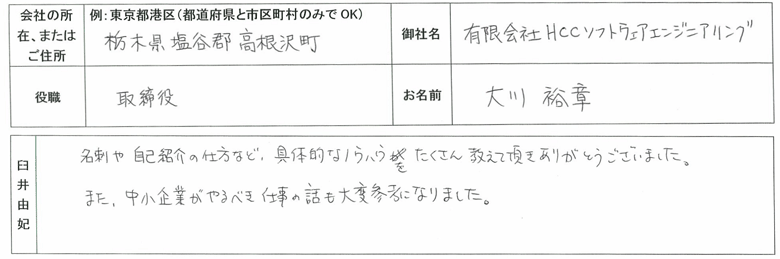 会社の所在、またはご住所
例:東京都港区(都道府県と市区町村のみでOK)
栃木県塩谷郡高根沢町
御社名
有限会社HCCソフトウェアエンジニアリング
役職
取締役
お名前
大川 裕章
臼井由妃
名刺や自己紹介の仕方など、具体的なノウハウをたくさん教えて頂きありがとうございました。
また、中小企業がやるべき仕事の話も大変参考になりました。